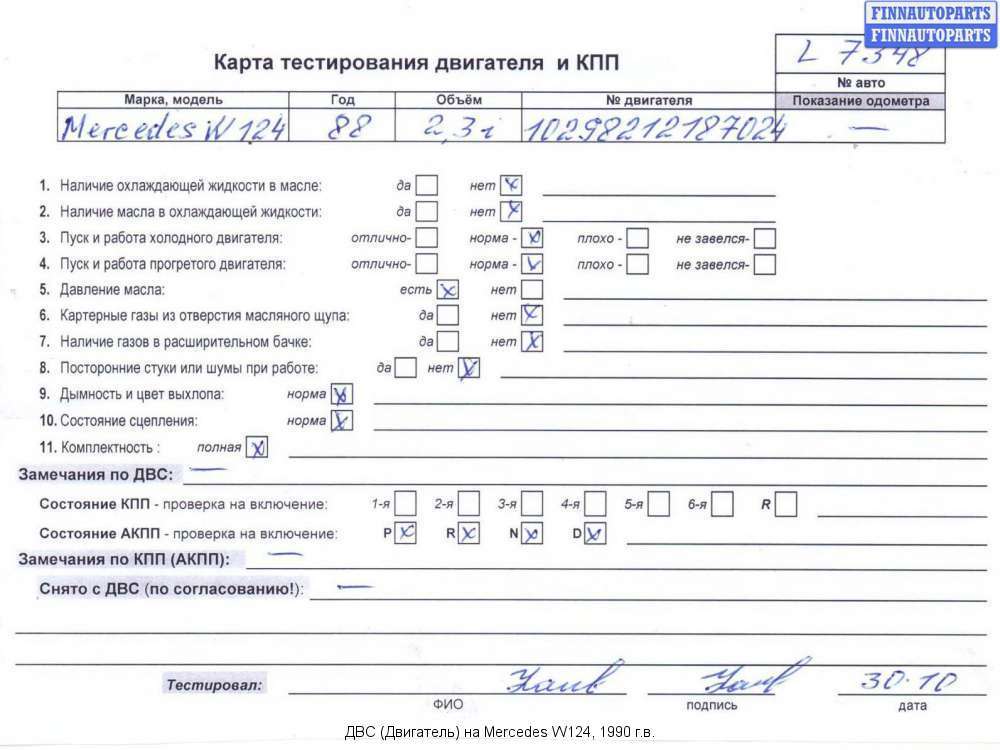 FINNAUTOPARTS
FINNAUTOPARTS
L 7348
Карта тестирования двигателя и КПП
№ авто
Марка, модель Год Объём № двигателя Показание одометра
Mercedes W 124 88 2,3i 10298212187024 —
1. Наличие охлаждающей жидкости в масле: да нет x
2. Наличие масла в охлаждающей жидкости: да нет x
3. Пуск и работа холодного двигателя: отлично- норма - x плохо - не завелся-
4. Пуск и работа прогретого двигателя: отлично- норма - x плохо - не завелся-
5. Давление масла: есть x нет
6. Картерные газы из отверстия масляного щупа: да нет x
7. Наличие газов в расширительном бачке: да нет x
8. Посторонние стуки или шумы при работе: да нет x
9. Дымность и цвет выхлопа: норма x
10. Состояние сцепления: норма x
11. Комплектность : полная x
Замечания по ДВС: —
Состояние КПП - проверка на включение: 1-я 2-я 3-я 4-я 5-я 6-я R
Состояние АКПП - проверка на включение: P x R x N x D x
Замечания по КПП (АКПП): —
Снято с ДВС (по согласованию!): —
Тестировал: 30.10
ФИО подпись дата
ДВС (Двигатель) на Mercedes W124, 1990 г.в.